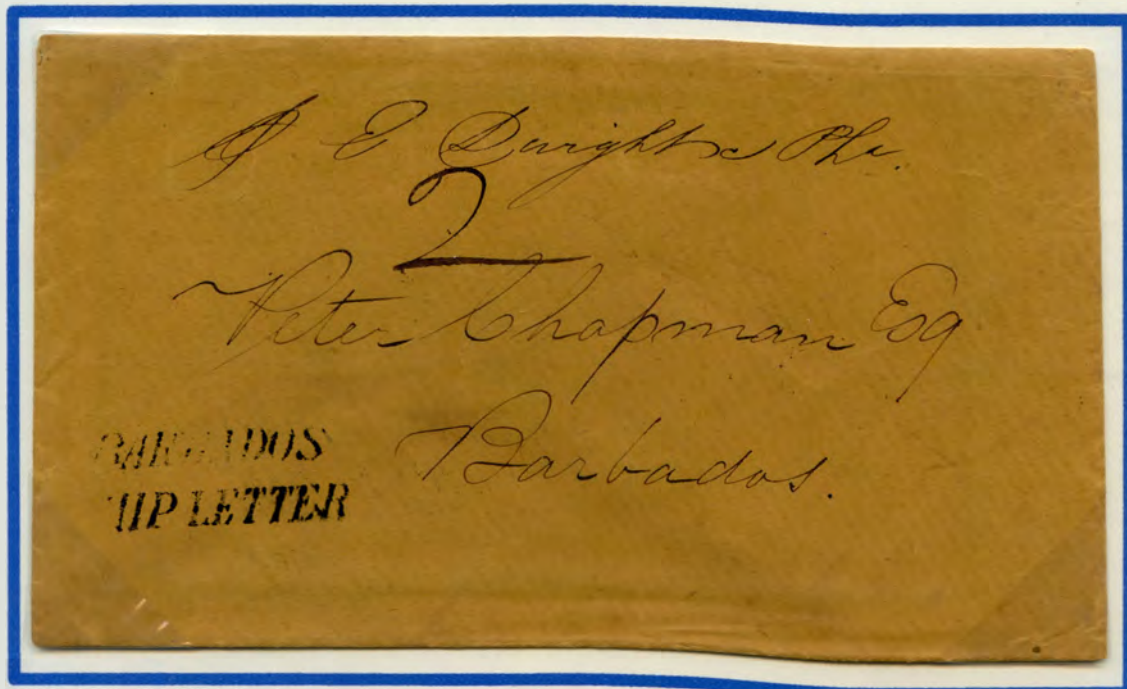 E Dwight
2
Peter Chapman Esq
Barbados.
BARBADOS
HIP LETTER